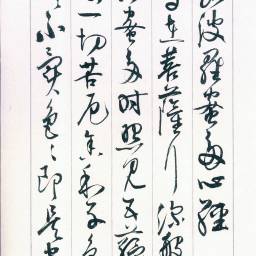 波羅蜜多心経
自在菩薩行深般
蜜多時照見五蘊
一切苦厄舍利子色
不異色々即是空